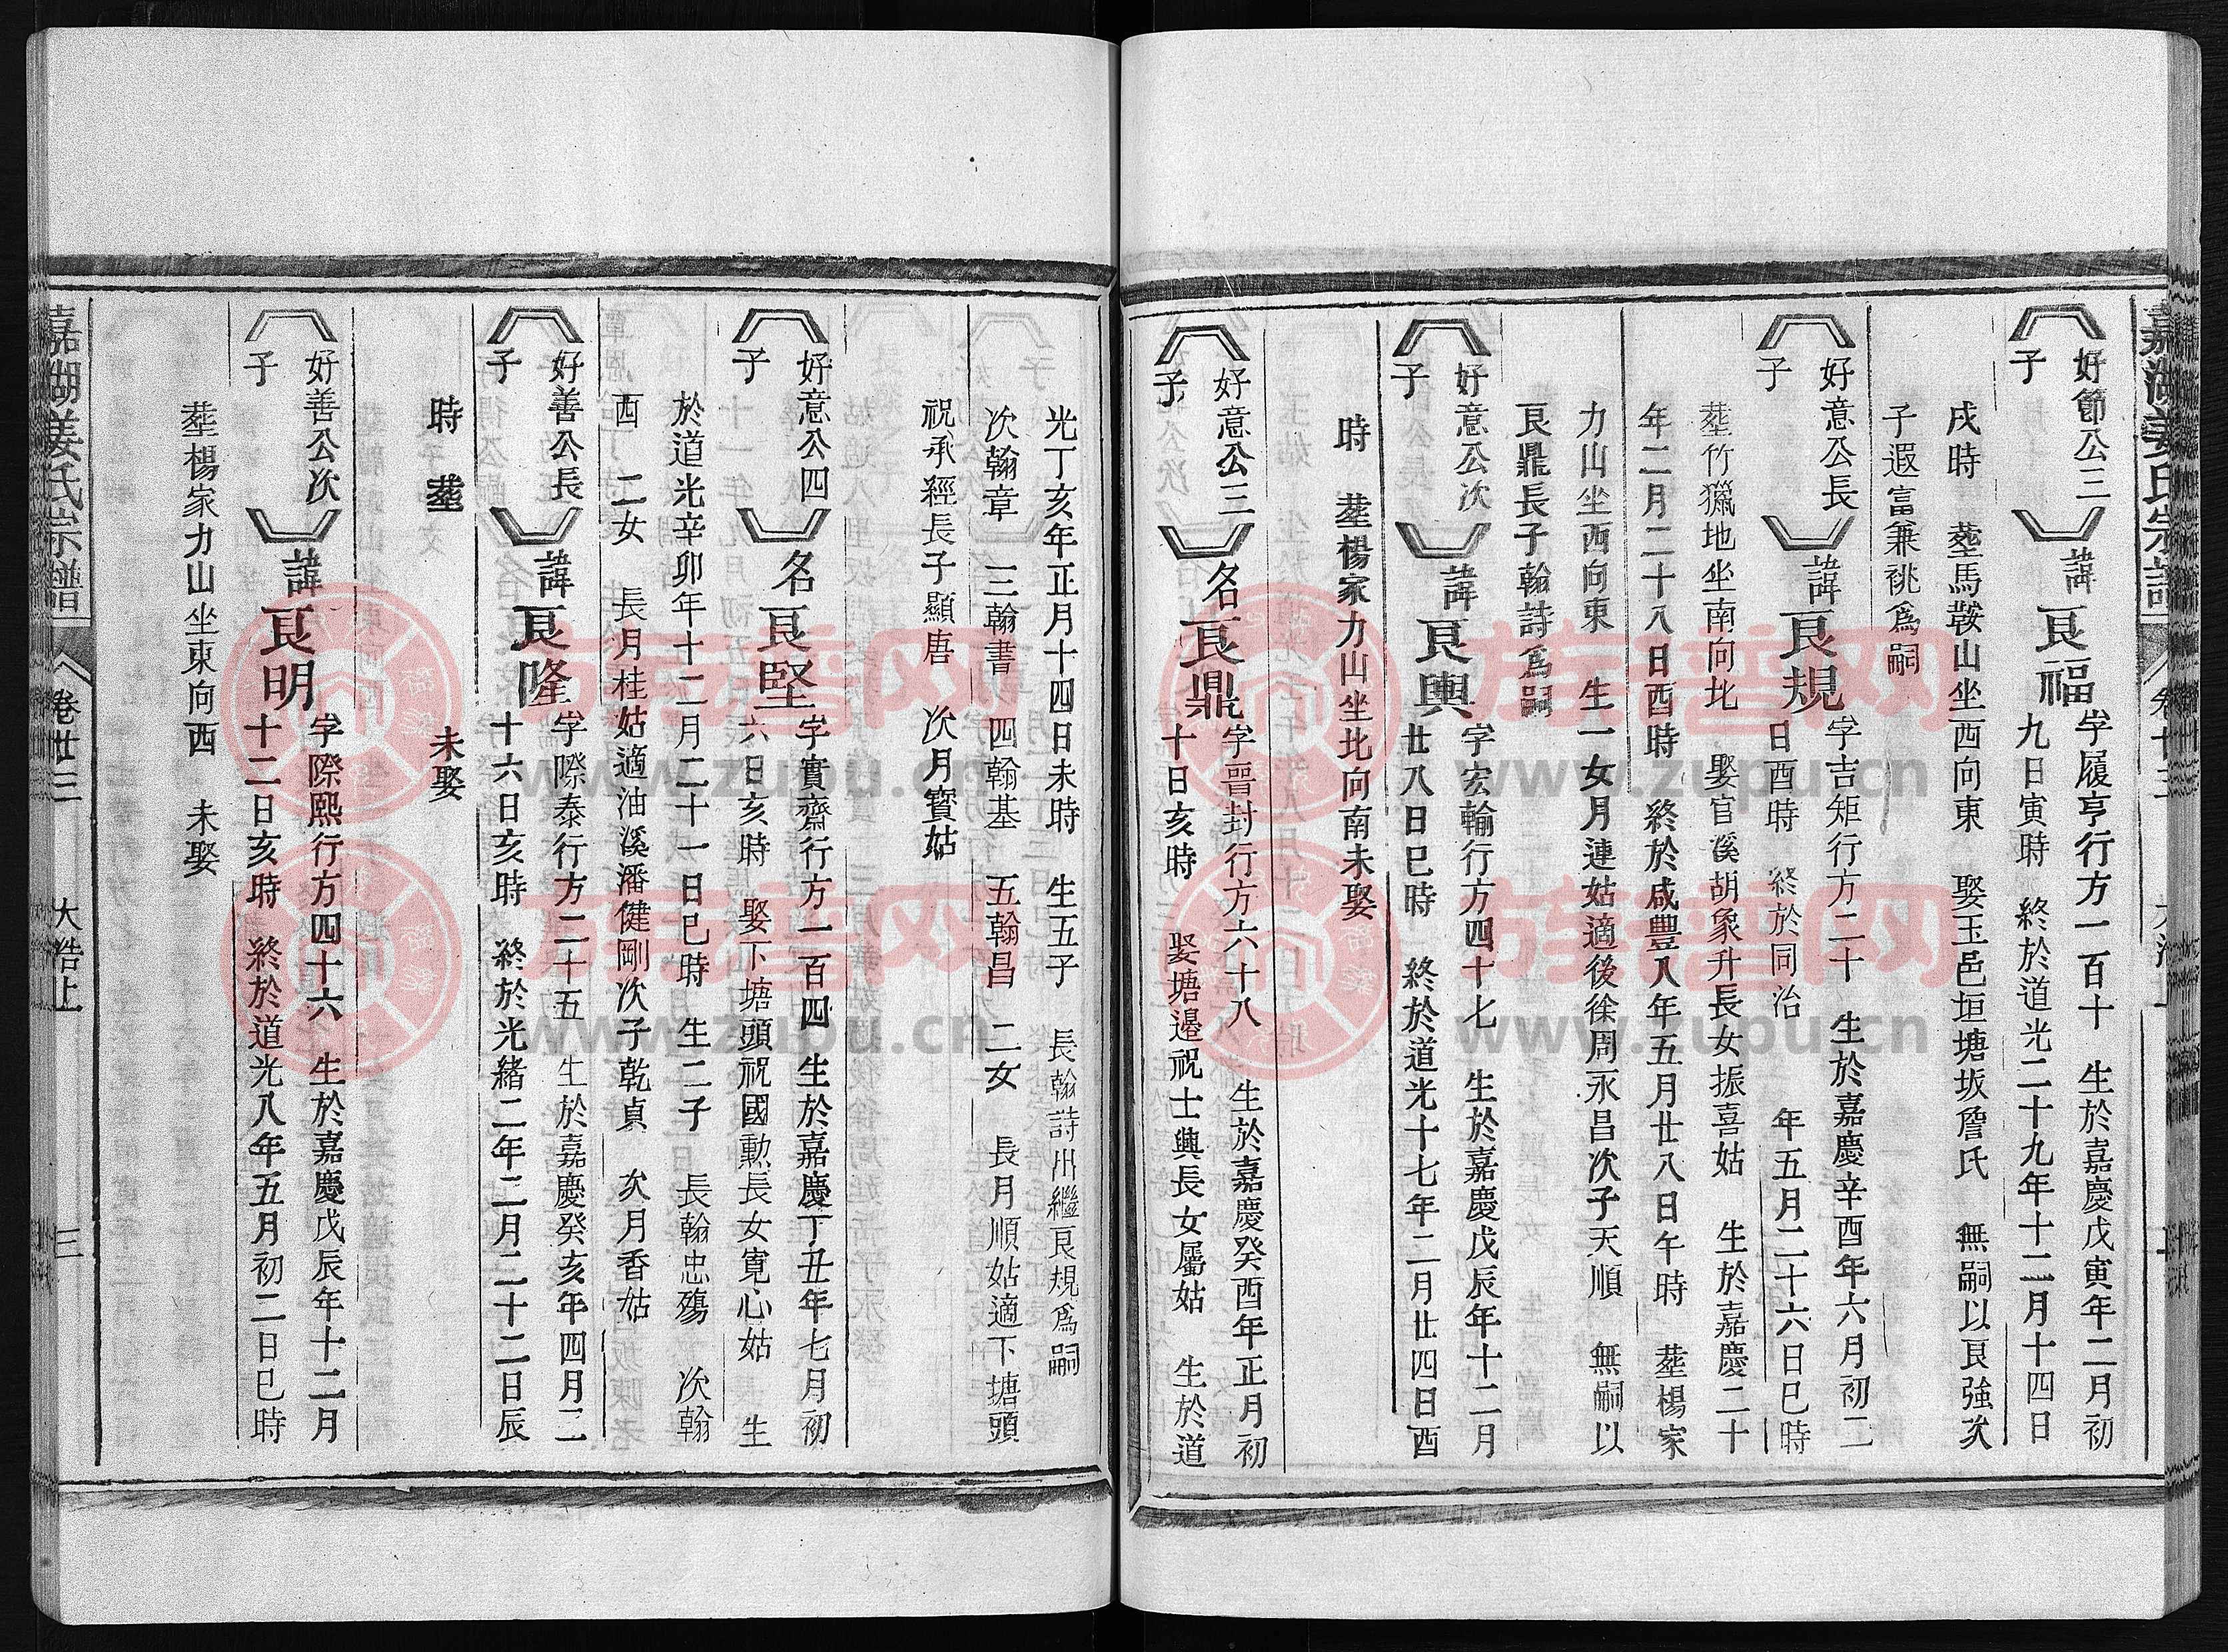 好節公三
子
諱艮福
字履亨行方一百十　生於嘉慶戊寅年二月初
九日寅時　終於道光二十九年十二月十四日
戌時　塟馬鞍山坐西向東　娶玉邑垣塘坂詹氏　無嗣以艮強次
子遐富兼祧爲嗣
好意公長
子
諱艮規
字吉矩行方二十　生於嘉慶辛酉年六月初二
日酉時　終於同治　年五月二十六日巳時
塟竹獵地坐南向北　娶官溪胡象升長女振喜姑　生於嘉慶二十
年二月二十八日酉時　終於咸豐八年五月廿八日午時　塟楊家
力山坐西向東　生一女月蓮姑適後徐周永昌次子天順　無嗣以
艮鼎長子翰詩爲嗣
好意公次
子
諱艮輿
字宏輪行方四十七　生於嘉慶戊辰年十二月
廿八日巳時　終於道光十七年二月廿四日酉
時　塟楊家力山坐北向南未娶
好意公三
子
名艮鼎
字晋封行方六十八　生於嘉慶癸酉年正月初
十日亥時　娶塘邊祝士與長女屬姑　生於道
光丁亥年正月十四日未時　生五子　長翰詩出繼艮規爲嗣
次翰章　三翰書　四翰基　五翰昌　二女　長月順姑適下塘頭
祝承經長子顯唐　次月寶姑
好意公四
子
名艮堅
字實齋行方一百四　生於嘉慶丁丑年七月初
六日亥時　娶下塘頭祝國勲長女寬心姑　生
於道光辛卯年十二月二十一日巳時　生二子　長翰忠殤　次翰
酉　二女　長月桂姑適油溪潘健剛次子乾貞　次月香姑
好善公長
子
諱艮隆
字際泰行方二十五　生於嘉慶癸亥年四月二
十六日亥時　終於光緒二年二月二十二日辰
時　塟　未娶
好善公次
子
諱艮明
字際熙行方四十六　生於嘉慶戊辰年十二月
十二日亥時　終於道光八年五月初二日巳時
塟楊家力山坐東向西　未娶
嘉湖姜氏宗譜　卷廿三　大浩上　三
族譜网
www.zupu.cn
族譜网
www.zupu.cn
族譜网
www.zupu.cn
族譜网
www.zupu.cn